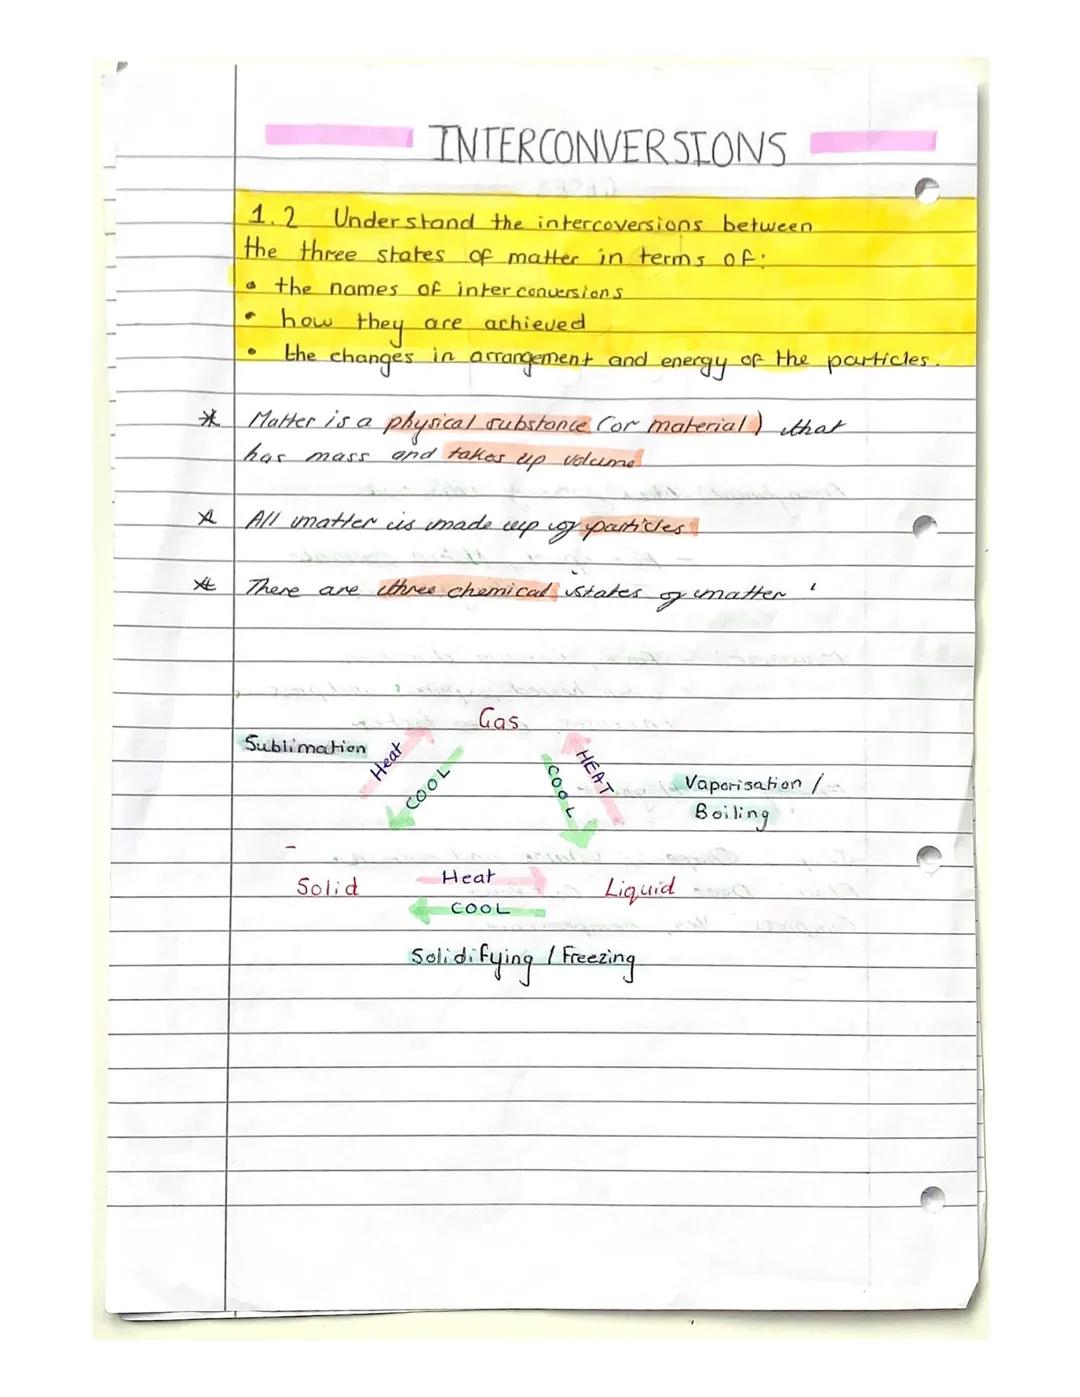 INTERCONVERSIONS
1.2 Understand the intercoversions between
the three states of matter in terms of:
• the names of interconversions
• how they are achieved
• the changes in arrangement and energy of the particles.
* Matter is a physical substance (or material) that
has mass and takes up volume
* All matter is made up of particles
* There are three chemical states of matter
Gas
Sublimation
Heat
COOL
COOL
HEAT
Vaporisation /
Boiling
Solid
Heat
COOL
Liquid
Solidifying / Freezing